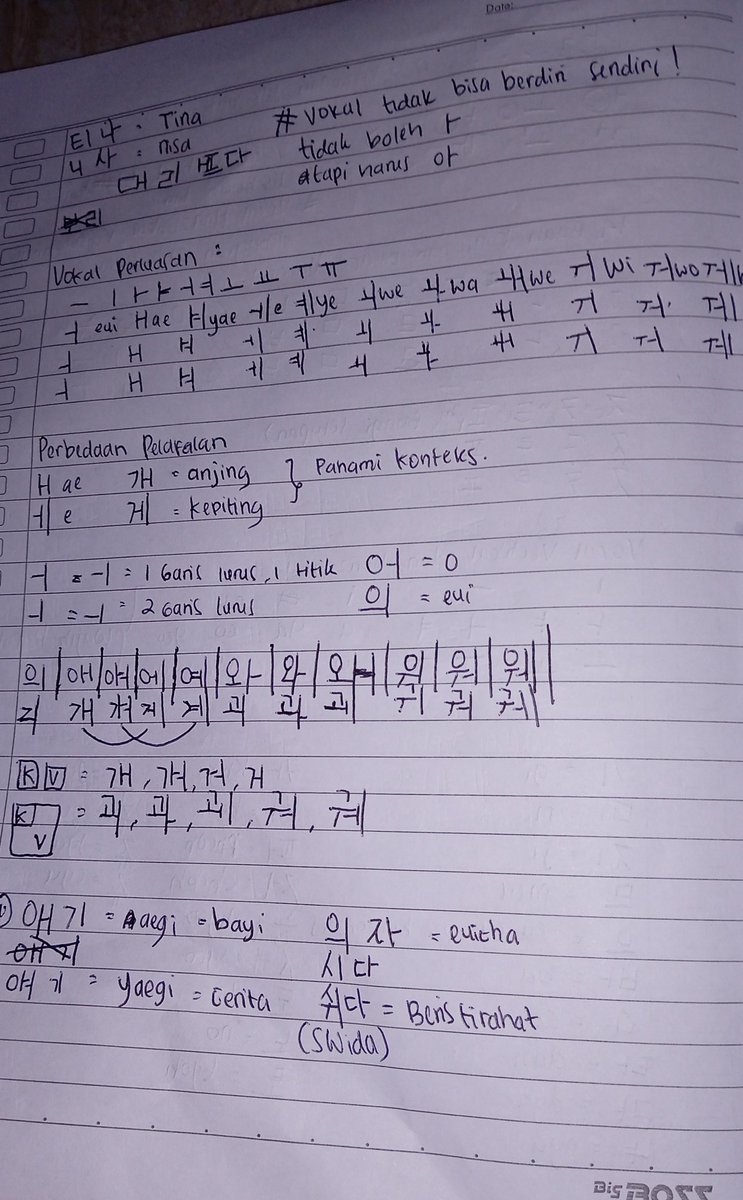 Date:
티나 : Tina # Vokal tidak bisa berdiri sendiri!
니사 : nisa tidak boleh ㅏ
대리 다 tapi harus 아
Vokal Perluasan :
ㅡ ㅣ ㅏ ㅑ ㅓ ㅕ ㅗ ㅛ ㅜ ㅠ
ㅢ eui ㅐae ㅒyae ㅔe ㅖye ㅚwe ㅘ wa ㅙwe ㅟ wi ㅝwo ㅞ
ㅢ ㅐ ㅒ ㅔ ㅖ ㅚ ㅘ ㅙ ㅟ ㅝ ㅞ
ㅢ ㅐ ㅒ ㅔ ㅖ ㅚ ㅘ ㅙ ㅟ ㅝ ㅞ
Perbedaan Pelafalan
ㅐ ae 개 = anjing } Pahami konteks.
ㅔ e 게 = kepiting
ㅓ = ㅓ = 1 Garis lurus, 1 titik 어 = o
ㅢ = ㅢ = 2 Garis lurus 의 = eui
의 | 애 | 얘 | 에 | 예 | 와 | 왁 | 외 | 위 | 워 | 웨
긔 개 걔 게 계 괴 과 괘 귀 궈 궤
K V = 개, 걔, 게, 계
K V = 괴, 과, 괘, 궈, 궤
애기 = aegi = bayi 의자 = euicha
시다
얘기 = yaegi = cerita 쉬다 = Beristirahat
(Swida)
Big BOSS